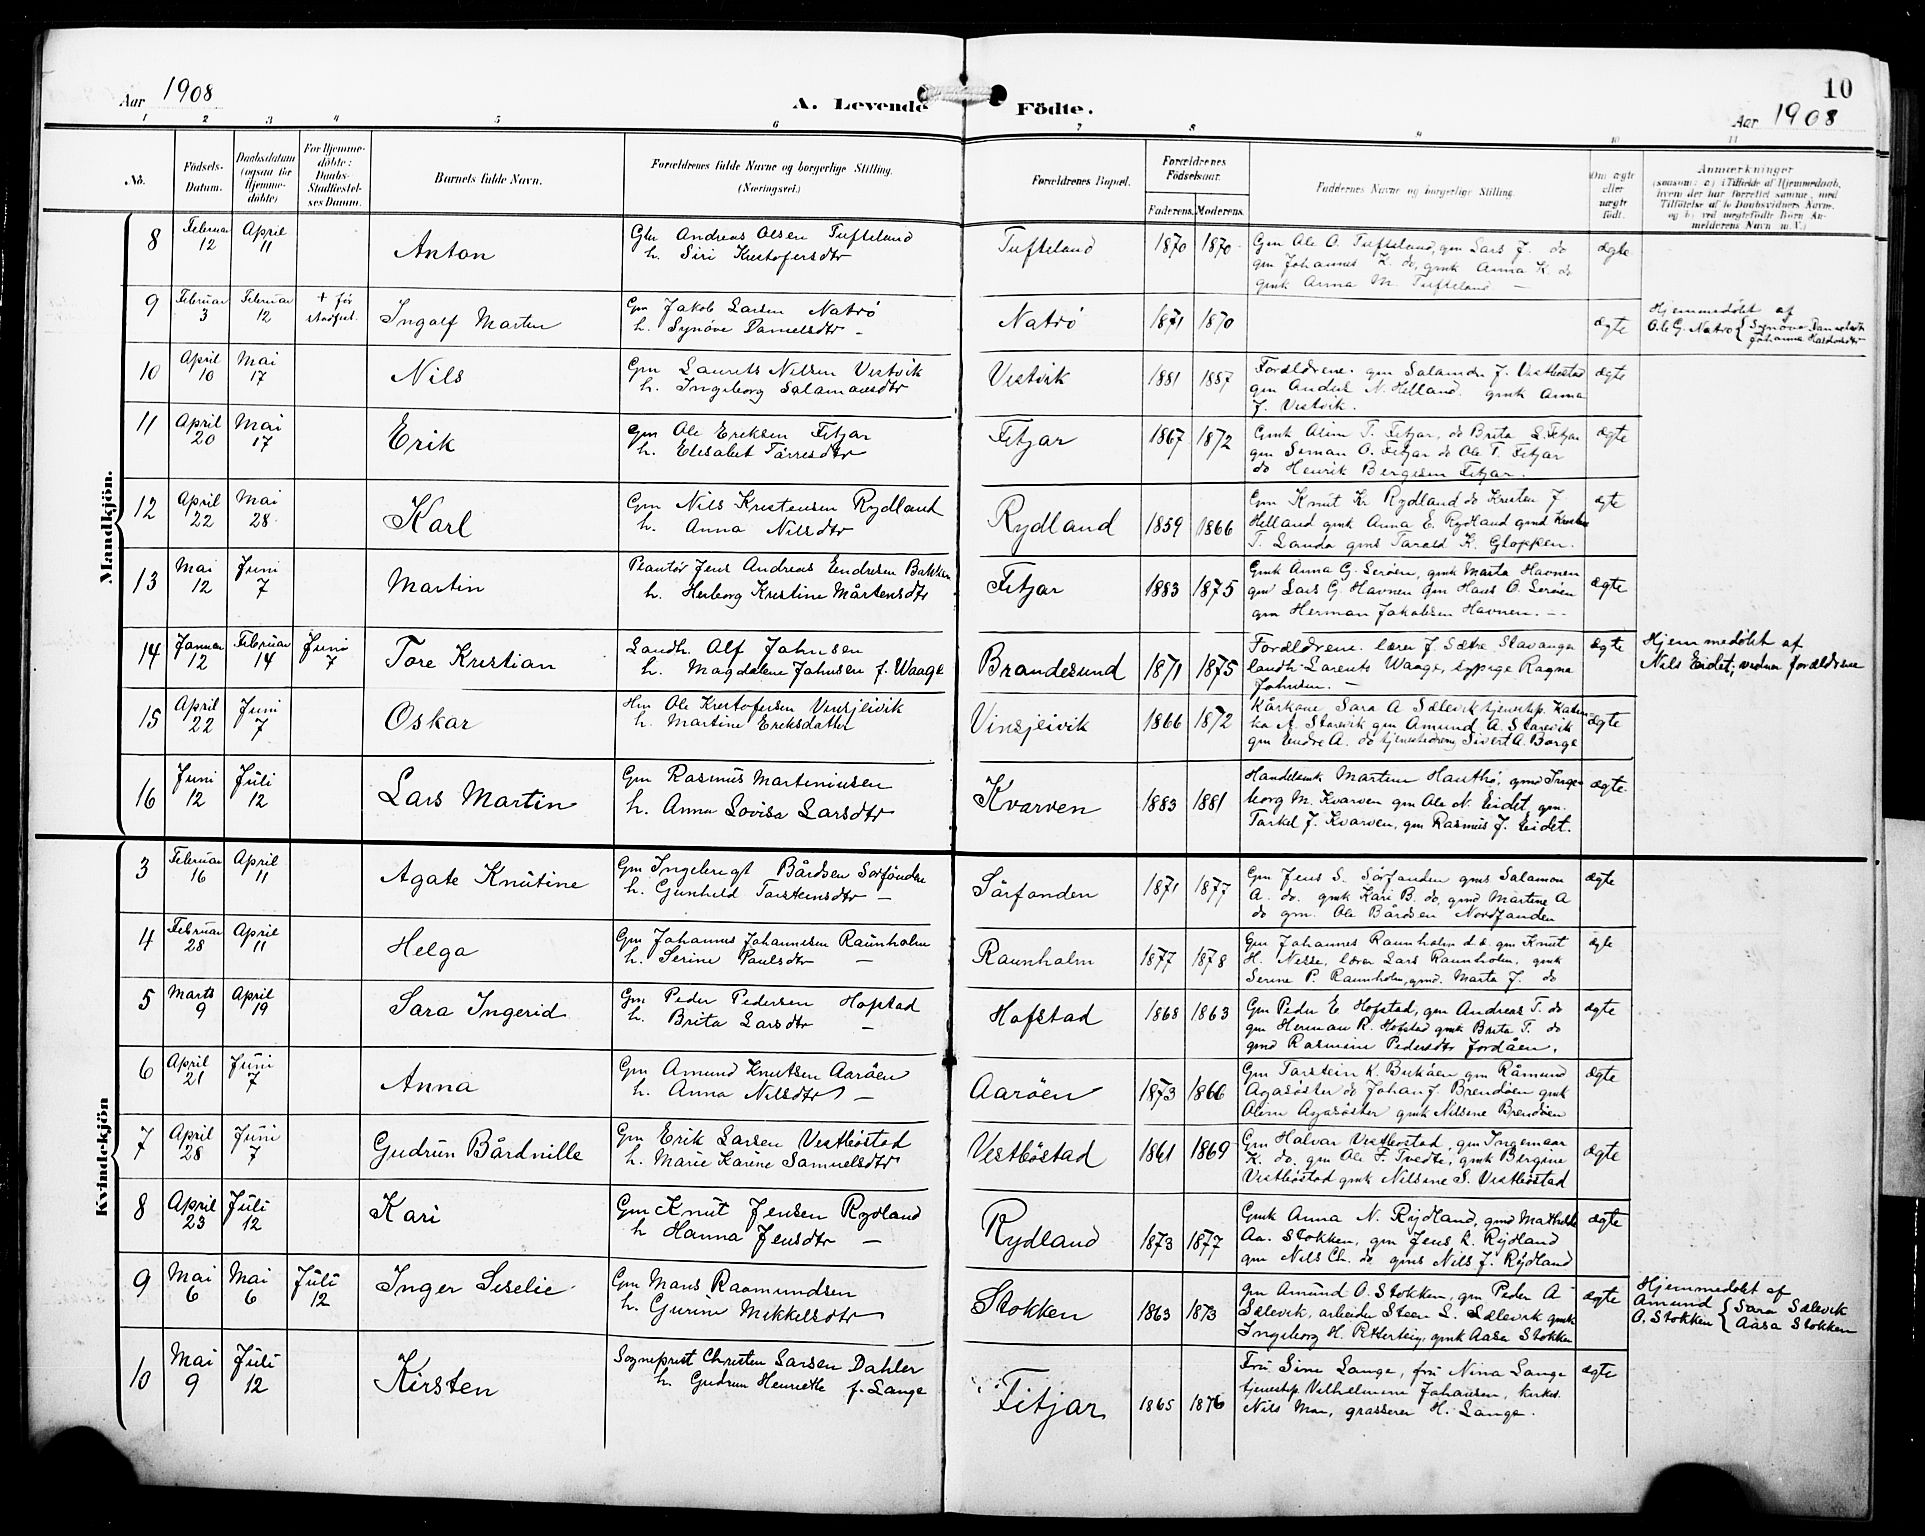 Aar 1908
A. Levende Födte.
10
Aar 1908
1 2 3 4 5 6 7 8 9 10 11
No.
Födsels-Datum.
Daabsdatum (ogsaa for Hjemme-döbte)
For Hjemme-döbte: Daabs-Stadfæstel-ses Datum.
Barnets fulde Navn.
Forældrenes fulde Navne og borgerlige Stilling. (Næringsvei.)
Forældrenes Bopæl.
Forældrenes Födselsaar.
Faderens. Moderens.
Faddernes Navne og borgerlige Stilling.
Om ægte eller uægte födt.
Anmærkninger
(saasom: a) i Tilfælde af Hjemmedaab,
hvem der har forrettet samme, med
Tilföielse af to Daabsvidners Navne.
og b) ved uægtefödte Börn An-
melderens Navn m. V.)
Mandkjön.
8 Februar 12 April 11 Anton
Gbr Andreas Olsen Tufteland
h. Siri Kristofersdtr
Tufteland 1870 1870
Gm Ole O. Tufteland, gm Lars J. do
gm Johannes K. do, gmk Anna K. do
gmk Anna M. Tufteland —
ægte
9 Februar 3 Februar 12 + før stadfest. Ingolf Martin
Gm Jakob Larsen Natrö
h. Synöve Danielsdtr —
Natrö 1871 1870 ægte
Hjemmedöbt af
Ole G. Natrö { Synöve Danielsdtr
Johanna
10 April 10 Mai 17 Nils
Gm Laurits Nilsen Vestvik
h. Ingeborg Salamonsdtr
Vestvik 1881 1887
Forældrene. gm Salamon J. Vestböstad
gm Anders N. Helland. gmk Anna
J. Vestvik.
ægte
11 April 20 Mai 17 Erik
Gm Ole Eriksen Fitjar
h. Elisabet Tørresdtr
Fitjar 1867 1872
Gmk Oline T. Fitjar, do Brita L. Fitjar
gm Simon O. Fitjar do Ole T. Fitjar
do Henrik Bergesen Fitjar.
ægte
12 April 22 Mai 28 Karl
Gm Nils Kristensen Rydland
h. Anna Nilsdtr
Rydland 1859 1866
Gm Knut K. Rydland do Kristen J.
Helland gmk Anna E. Rydland gmd
T. Landa gms Tarald K. Gloppen.
ægte
13 Mai 12 Juni 7 Martin
Jens Andreas Endresen Bakken
h. Herborg Kristine Mårtensdtr
Fitjar 1883 1875
Gmk Anna G. Seröen, gmk Marta Havnen
gm Lars G. Havnen gm Hans O. Seröen
gm Herman Jakobsen Havnen. —
ægte
14 Januar 12 Februar 14 Juni 7 Tore Kristian
Landh. Alf Johnsen
h. Magdalene Johnsen f. Waage
Brandesund 1871 1875
Forældrene. lærer J. Sætre Stavanger
landh. Larents Waage, Ragna
Johnsen. —
ægte
Hjemmedöbt af
Nils Eidet; vidner forældrene
15 April 22 Juni 7 Oskar
Hm Ole Kristofersen Vinsjlivik
h. Martine Eriksdatter
Vinsjlivik 1866 1872
Kårkone Sara A Sælevik tjenestep.
A. Storevik gm Amund A. Storevik
gm Endre A. do tjenestedreng Sivert A. Borge
ægte
16 Juni 12 Juli 12 Lars Martin
Gm Rasmus Martiniusen
h. Anna Lovisa Larsdtr
Kvarven 1883 1881
Martin gmd Inge-
borg M. Kvarven gm Ole N. Eidet, gm.
Torkel J. Kvarven, gm Rasmus J. Eidet.
ægte
Kvindekjön
3 Februar 16 April 11 Agate Knutine
Gm Ingebrigt Bårdsen Sörfonden
h. Gunhild Torsteinsdtr —
Sörfonden 1871 1877
Gm Jens S. Sörfonden gms Salamon
A. do. gmk Kari B. do, gmd Martine A
do gm. Ole Bårdsen Nordfonden
ægte
4 Februar 28 April 11 Helga
Gm Johannes Johannesen Raunholm
h. Serine Paulsdtr —
Raunholm 1877 1878
Gm Johannes Raunholm d.e. gm Knut
H. Nesse, lærer Lars Raunholm, gmk
Serine P. Raunholm, gmd. Marta J. do
ægte
5 Marts 9 April 19 Sara Ingerid
Gm Peder Pedersen Hofstad
h. Brita Larsdtr —
Hofstad 1868 1863
Gm Peder E. Hofstad, gm Andreas T. do
gm Herman R. Hofstad gmk Brita T. do
gmd Rasmine Pedersdtr Jordåen.
ægte
6 April 21 Juni 7 Anna
Gm Amund Knutsen Aaröen
h. Anna Nilsdtr —
Aaröen 1873 1866
Gm Torstein K. gm Råmund
Agasöster do Johan J. Brendöen gmk
Oline Agasöster gmk Nilsine Brendöen
ægte
7 April 28 Juni 7 Gudrun Bårdnille
Gm Erik Larsen Vestböstad
h. Marie Karine Samuelsdtr
Vestböstad 1861 1869
Gm Halvar Vestböstad, gm Ingemaar
K. do. gm Ole F. Tvedte, gmk Bergine
Vestböstad gmk Nilsine S. Vestböstad
ægte
8 April 23 Juli 12 Kari
Gm Knut Jensen Rydland
h Hanna Jensdtr —
Rydland 1873 1877
Gmk Anna N. Rydland, gmd Mathilde
Aa. Stokken, gm Jens L. Rydland
gm Nils Ch. do, gms Nils J. Rydland
ægte
9 Mai 6 Mai 6 Juli 12 Inger Siselie
Gm Mons Raamundsen
h. Gurine Mikkelsdtr
Stokken 1863 1873
gm Amund O. Stokken, gm Peder A
Sælevik, arbeider Steen L. Sælevik gmk
Ingeborg H. gmk Aasa Stokken
ægte
Hjemmedöbt af
Amund { Sara Sælevik
O. Stokken { Aasa Stokken
10 Mai 9 Juli 12 Kirsten
Sogneprest Christen Larsen Dahler
h. Gudrun Henriette f. Lange
Fitjar 1865 1876
Fru Sine Lange, fru Nina Lange
tjenestep. Vilhelmine Johansen, kirkes.
Nils Moe, grosserer H. Lange.
ægte